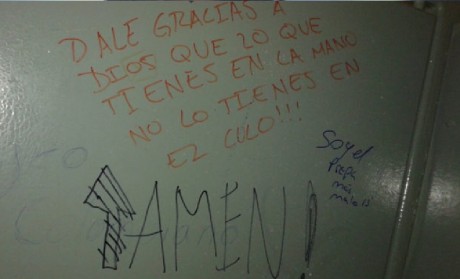 DALE GRACIAS A
DIOS QUE LO QUE
TIENES EN LA MANO
NO LO TIENES EN
EL CULO!!!
Soy el
Papa
más
AMEN!